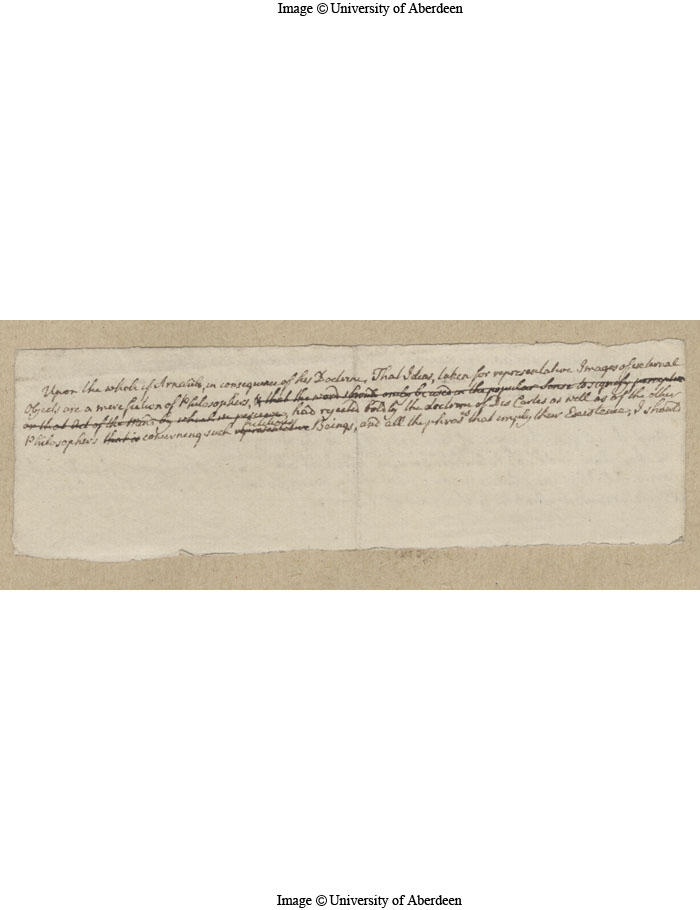 Image © University of Aberdeen
Upon the whole if Arnauld, in consequence of his Doctrine, That Ideas, taken for representative Images of external
Objects are a mere fiction of Philosophers, & that the word should only be used in the popular sense to signify perception
or that Act of the Mind by which we perceive, had rejected boldly the doctrine of Des Cartes as well as of the other
Philosophers that is concerning such representative fictitious Beings, and all the phrases that imply their Existence, I should
Image © University of Aberdeen